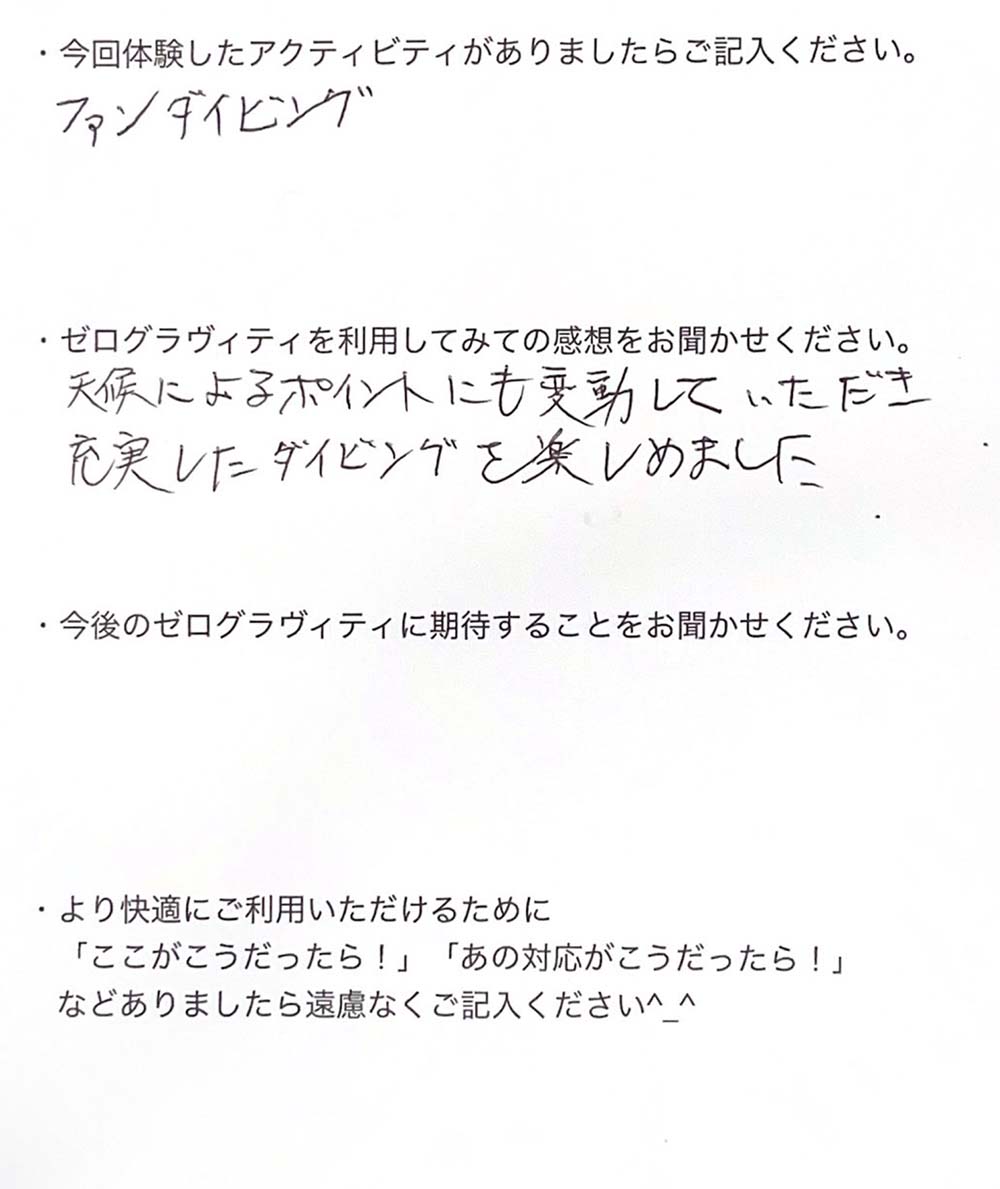 ・今回体験したアクティビティがありましたらご記入ください。
ファンダイビング
・ゼログラヴィティを利用してみての感想をお聞かせください。
天候によるポイントにも変動していただき
充実したダイビングを楽しめました
・今後のゼログラヴィティに期待することをお聞かせください。
・より快適にご利用いただけるために
「ここがこうだったら！」「あの対応がこうだったら！」
などありましたら遠慮なくご記入ください^_^